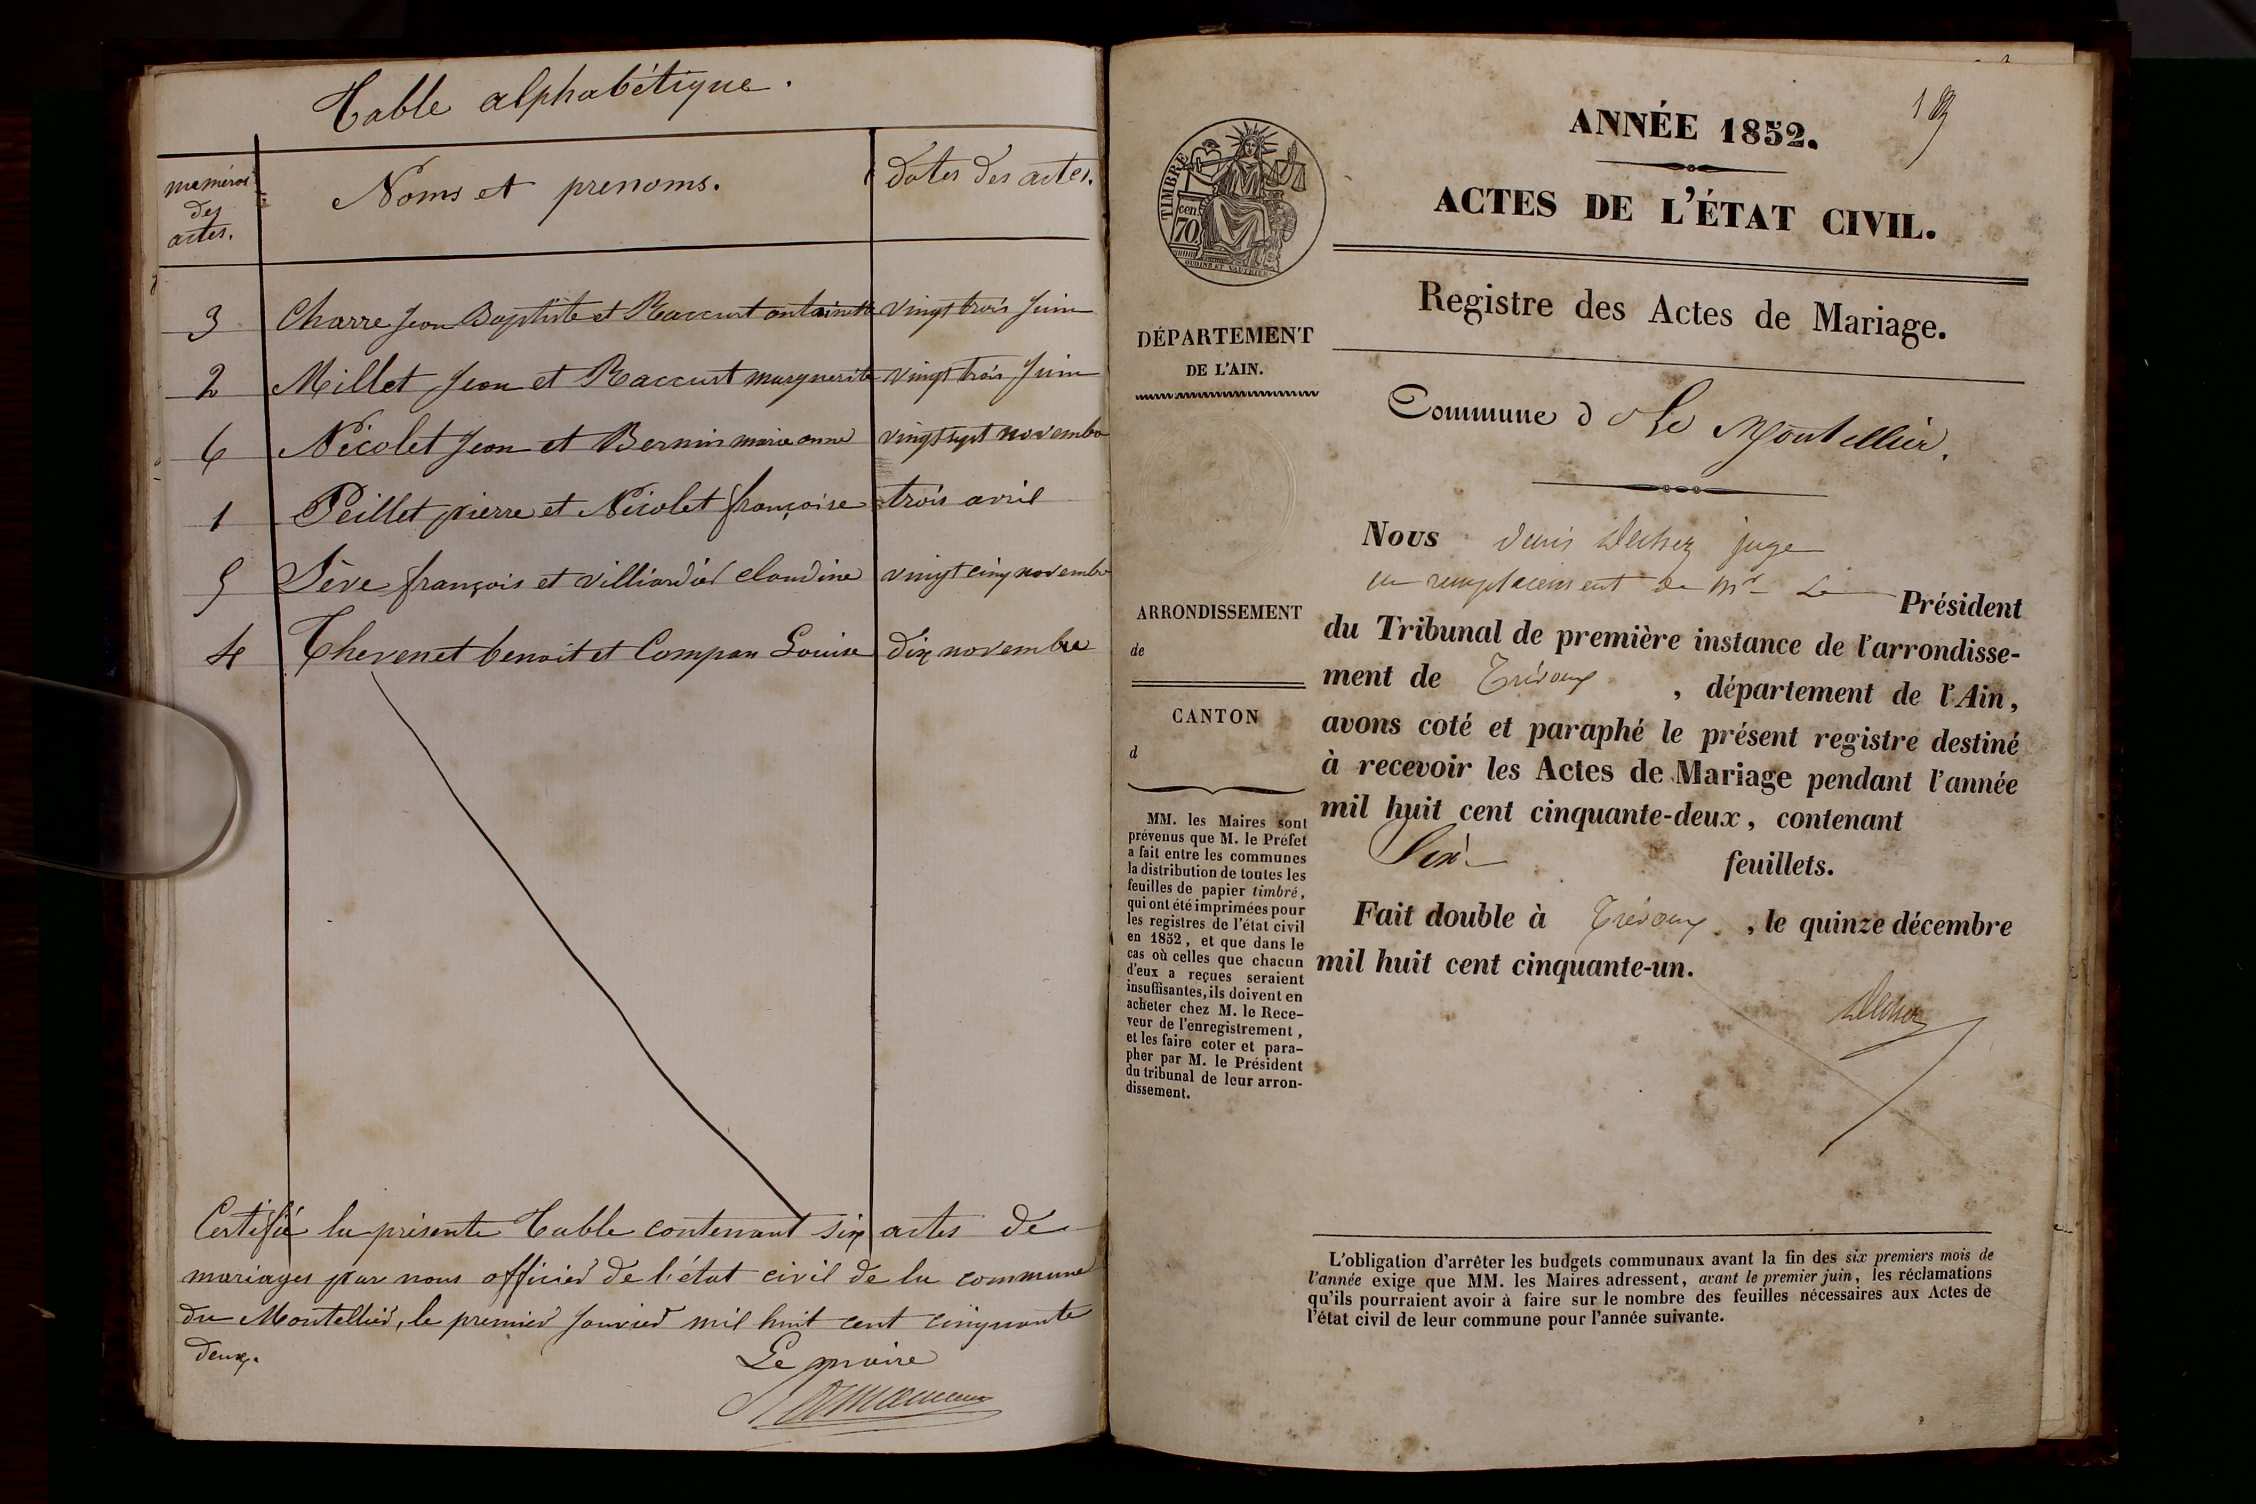 Table alphabétique.
numéros des actes.
Noms et prenoms.
dates des actes.
3 Charre Jean Baptiste et Raccurt antoinette vingt trois Juin
2 Millet Jean et Raccurt marguerite vingt trois Juin
6 Nicolet Jean et Bernin marie anne vingt sept novembre
1 Peillet pierre et Nicolet françoise trois avril
5 Sève françois et villiardier claudine vingt cinq novembre
4 Thevenet benoit et Compan Louise dix novembre
Certifié la présente Table contenant six actes de
mariages par nous officier de l'état civil de la commune
du Montellier, le premier janvier mil huit cent cinquante
deux.
Le maire
1
ANNÉE 1852.
ACTES DE L'ÉTAT CIVIL.
TIMBRE
cen.
70
OUDINÉ ET VAUTHIER
Registre des Actes de Mariage.
DÉPARTEMENT
DE L'AIN.
Commune d Le Montellier.
Nous denis Dechez juge
en remplacement de Mr Le Président
du Tribunal de première instance de l'arrondisse-
ment de Trévoux , département de l'Ain,
avons coté et paraphé le présent registre destiné
à recevoir les Actes de Mariage pendant l'année
mil huit cent cinquante-deux, contenant
Six feuillets.
Fait double à Trévoux , le quinze décembre
mil huit cent cinquante-un.
Dechez
ARRONDISSEMENT
de
CANTON
d
MM. les Maires sont
prévenus que M. le Préfet
a fait entre les communes
la distribution de toutes les
feuilles de papier timbré,
qui ont été imprimées pour
les registres de l'état civil
en 1852, et que dans le
cas où celles que chacun
d'eux a reçues seraient
insuffisantes, ils doivent en
acheter chez M. le Rece-
veur de l'enregistrement,
et les faire coter et para-
pher par M. le Président
du tribunal de leur arron-
dissement.
L'obligation d'arrêter les budgets communaux avant la fin des six premiers mois de
l'année exige que MM. les Maires adressent, avant le premier juin, les réclamations
qu'ils pourraient avoir à faire sur le nombre des feuilles nécessaires aux Actes de
l'état civil de leur commune pour l'année suivante.